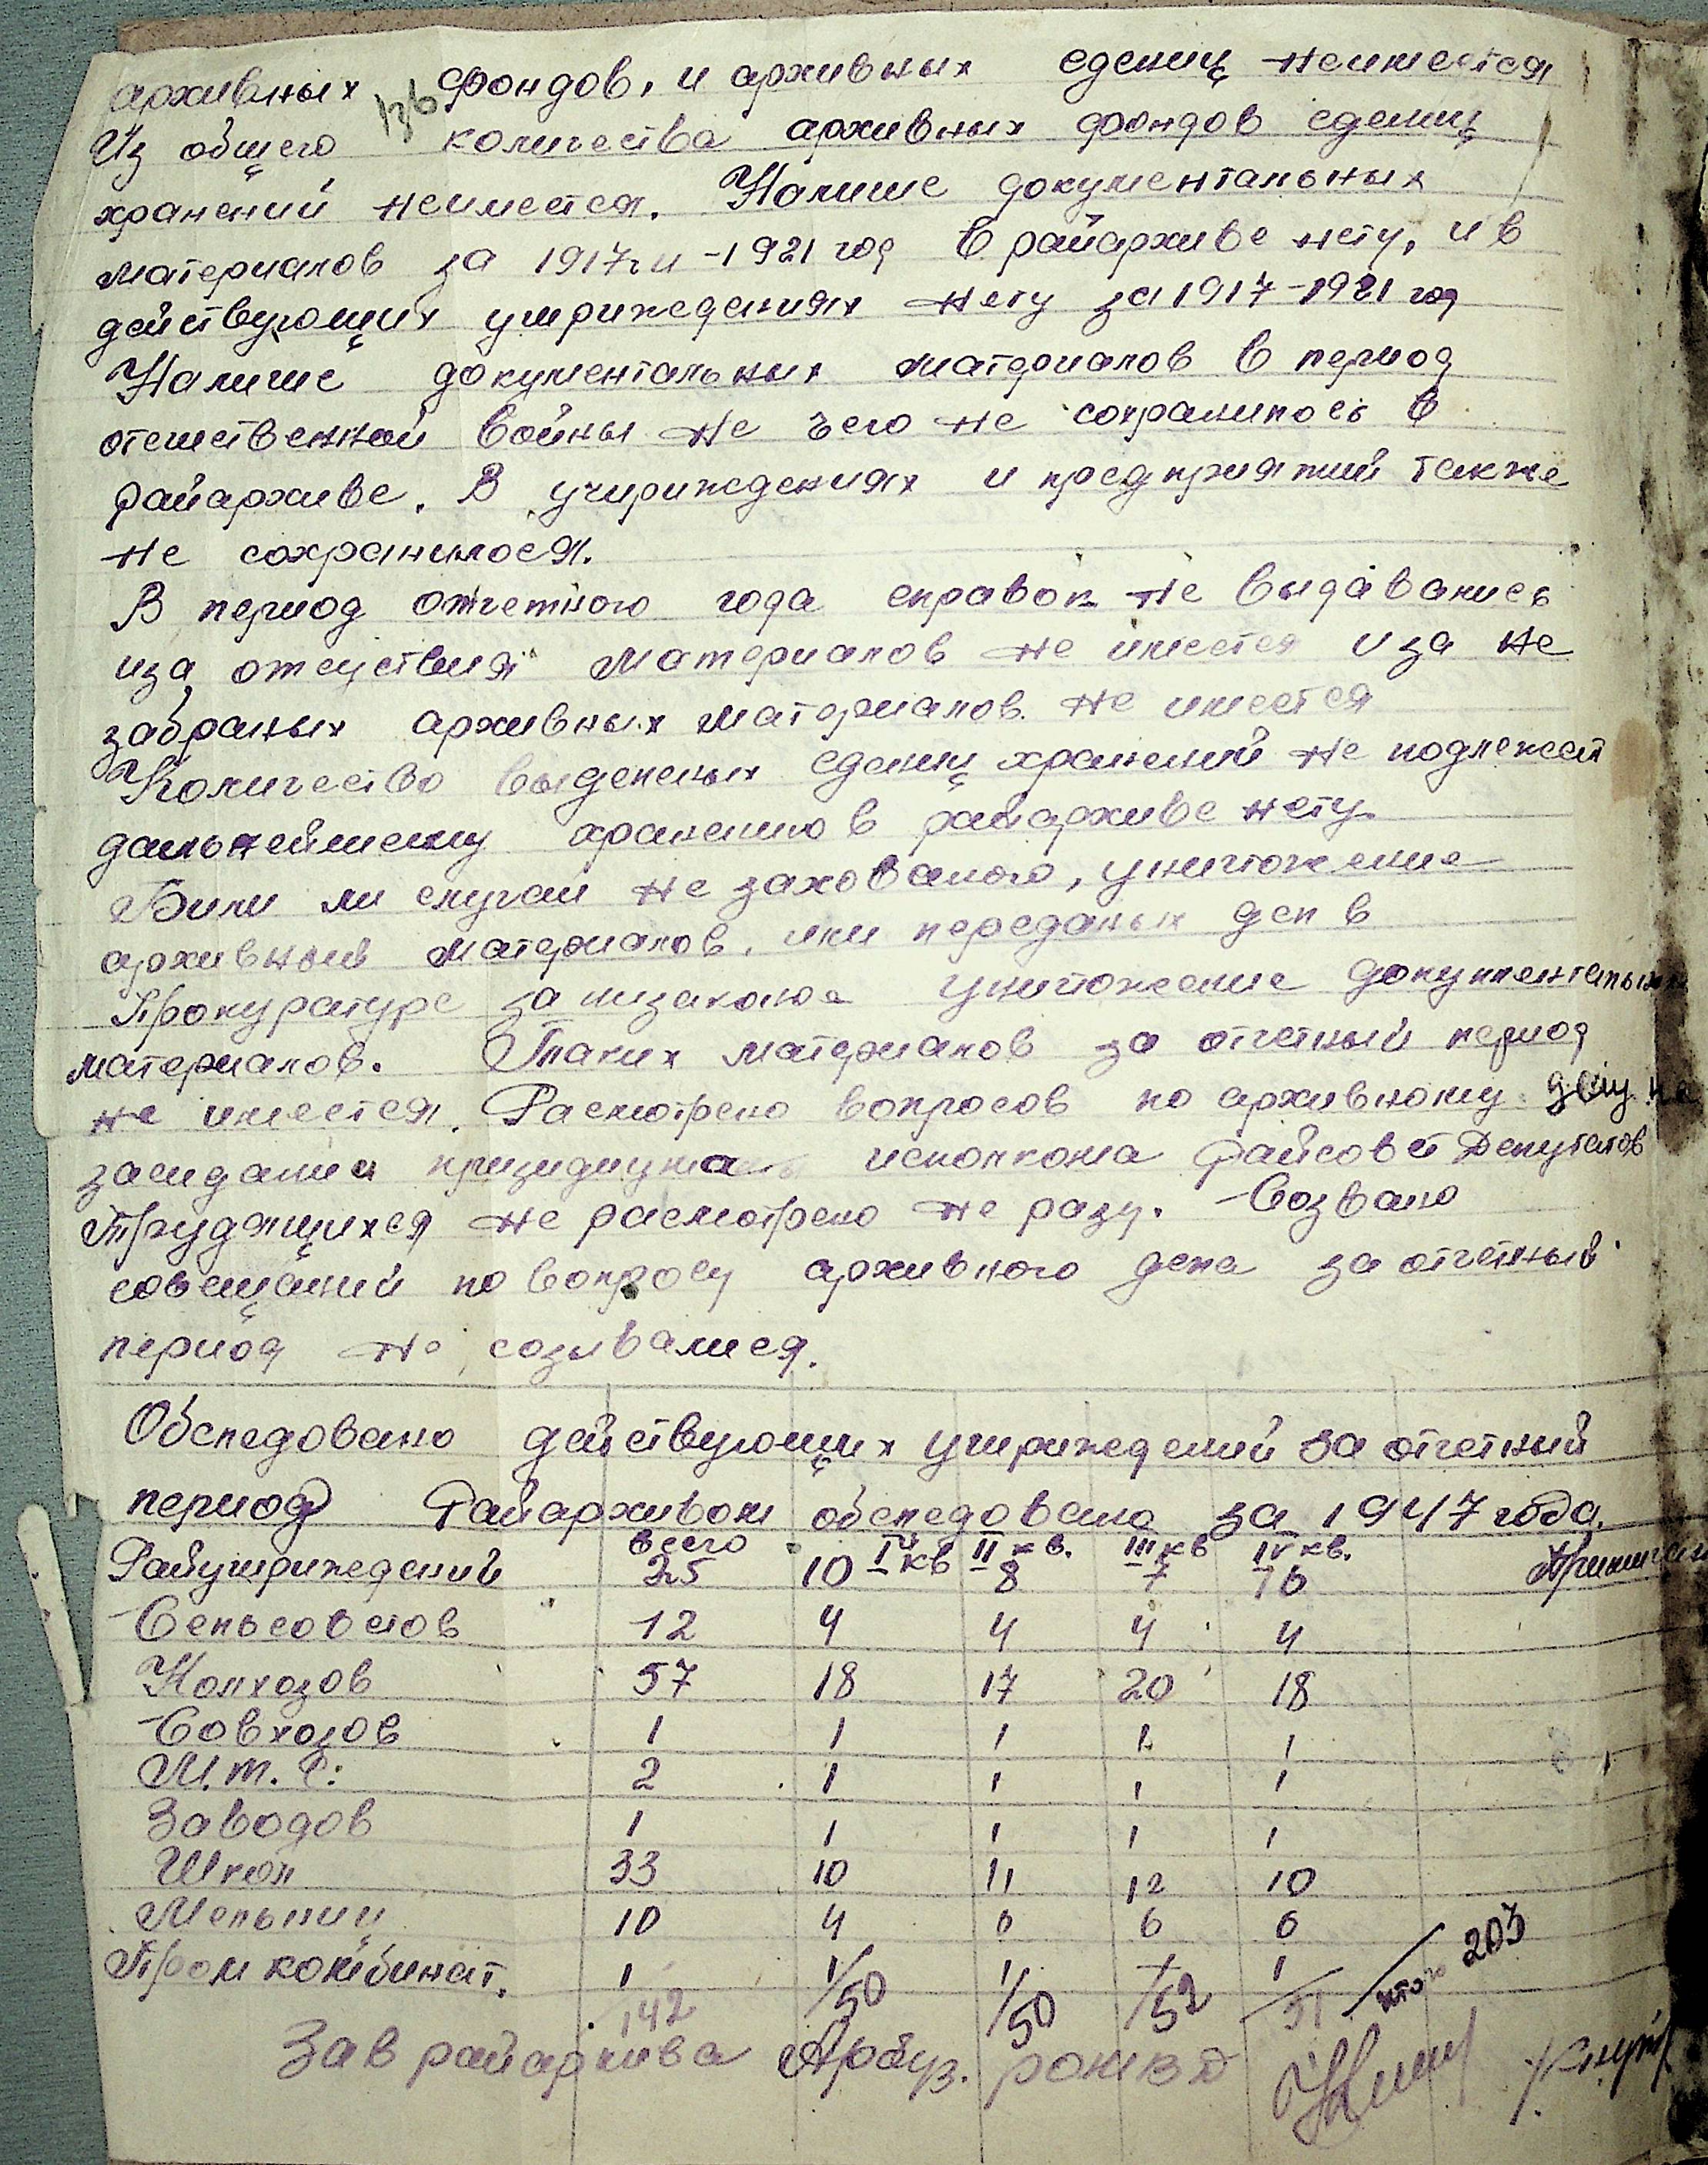 архивных фондов, и архивных едениц неимеется
Из общего количества архивных фондов едениц
хранений неимеется. Наличие документальных
материалов за 1917ги -1921 год в райархиве нету, и в
действующих учириждениях нету за 1917-1921 год
Наличие документальных материалов в период
отечественной войны не чего не сохранилось в
райархиве. В учириждениях и предприятий также
не сохранилося.
В период отчетного года справок не выдавались
иза отсуствия материалов не имеется иза не
забраных архивных материалов не имеется
Количество выделеных едениц хранений не подлежат
дальнейшему хранению в райархиве нету
Били ли случаи не захованого, уничтожение
архивных материалов, или переданых дел в
Прокуратуре за низаконое уничтожение документальных
материалов. Таких материалов за отчетный период
не имеется. Расмотрено вопросов по архивному делу на
заседания призидиума исполкома Райсовет Депутатов
Трудящихся не расмотрено не разу. Созвано
совещаний по вопросу архивного дела за отчетный
период не созывалися.
Обследовано действующих учириждений за отчетный
период Райархивом обследовано за 1947 года.
всего I кв II кв. III кв IV кв.
Райучириждений 25 10 8 7 10
Сельсоветов 12 4 4 4 4
Колхозов 57 18 17 20 18
Совхозов 1 1 1 1 1
М.т.с. 2 1 1 1 1
Заводов 1 1 1 1 1
Школ 33 10 11 12 10
Мельниц 10 4 6 6 6
Пром комбинат. 1 1 1 1 1
142 50 50 52 51 итого 203
Зав райархива Арбуз. РОМВД